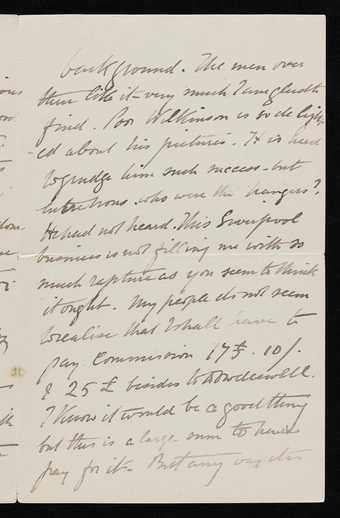 background. The men over
there like it - very much I am glad to
find. Poor Wilkinson is so deligh-
ted about his pictures. It is hard
to grudge him such success - but
who were the hangers?
He had not heard. This Liverpool
business is not filling me with so
much rapture as you seem to think
it ought. My people do not seem
to realise that I shall have to
pay Commission 17£. 10/.
& 25£ besides to Dowdeswell.
I know it would be a good thing
but this is a large sum to have
pay for it - But any way